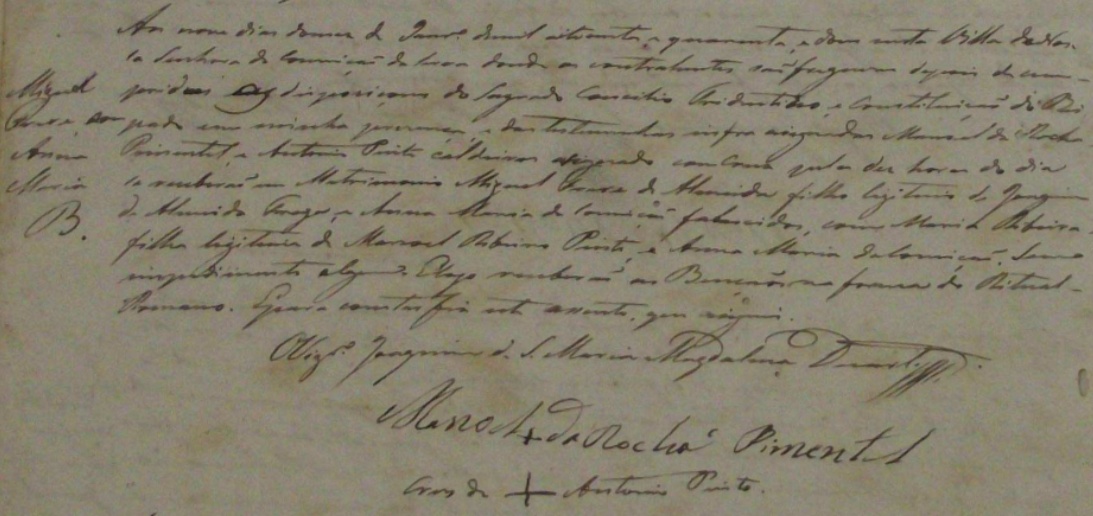 Aos nove dias do mez de Janrº de mil oitocentos e quarenta e dous nesta Villa de Nos-
sa Senhora da Conceição da donde os contrahentes são freguezes depois de cum-
Miguel
pridas as disposiçoens do Sagrado Concilio Tridentino, e Constituição do Bis
com
pado em minha presença, e das testemunhas infra assignadas Manoel da Rocha
Anna
Pimentel, e Antonio Pinto Caldeira assignado com Cruz pelas dez horas do dia
Maria
se receberão em Matrimonio Miguel de Almeida filho legitimo de Joaquim
B.
de Almeida e Anna Maria da Conceição falescidos, com Maria Ribeira
filha legitima de Manoel Ribeiro Pinto, e Anna Maria da Conceição. Sem
impedimento algum. E logo receberão as Bençoens na forma do Ritual
Romano. E para constar fiz este assento, que assignei.
O Vigrº Joaquim de S. Maria Magdalena Duarte
Manoel da Rocha Pimentel
Cruz de + Antonio Pinto.